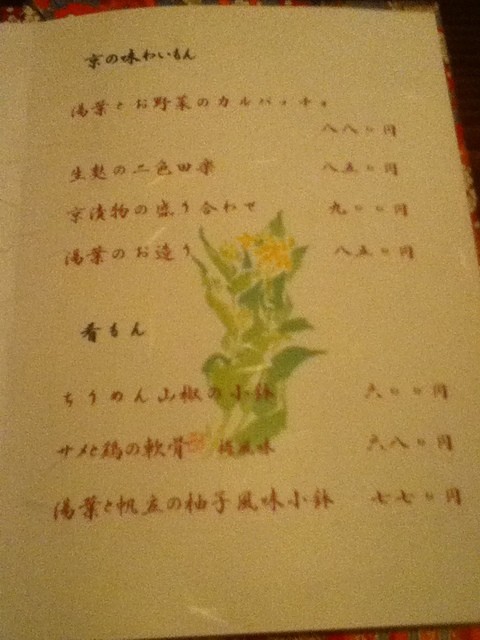 京の味わいもん
湯葉とお野菜のカルパッチョ
八八〇円
生麩の二色田楽 八五〇円
京漬物の盛り合わせ 九〇〇円
湯葉のお造り 八五〇円
肴もん
ちりめん山椒の小鉢 六〇〇円
サメと鶏の軟骨 梅風味 六八〇円
湯葉と帆立の柚子風味小鉢 七七〇円